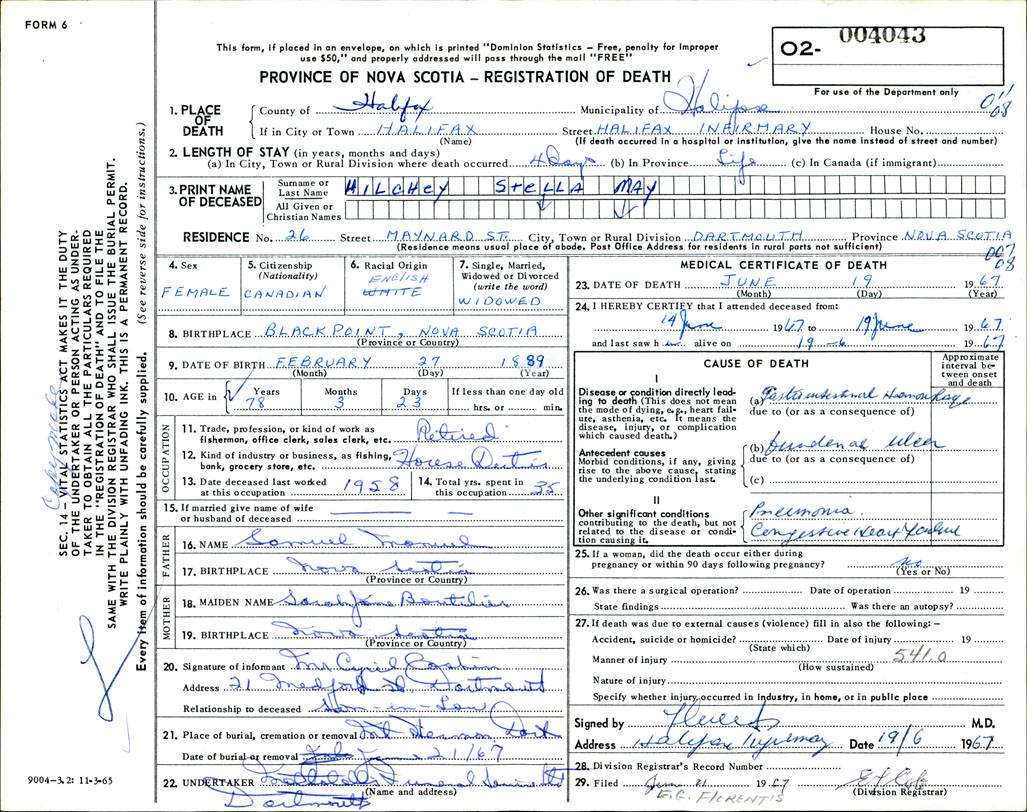 FORM 6
This form, if placed in an envelope, on which is printed "Dominion Statistics – Free, penalty for improper
use $50," and properly addressed will pass through the mail "FREE"
PROVINCE OF NOVA SCOTIA – REGISTRATION OF DEATH
02- 004043
For use of the Department only
011
08
1. PLACE OF DEATH
County of Halifax Municipality of Halifax
If in City or Town HALIFAX Street HALIFAX INFIRMARY House No.
(Name) (If death occurred in a hospital or institution, give the name instead of street and number)
2. LENGTH OF STAY (in years, months and days)
(a) In City, Town or Rural Division where death occurred 4 Days (b) In Province Life (c) In Canada (if immigrant)
3. PRINT NAME OF DECEASED
Surname or Last Name HILCHEY STELLA MAY
All Given or Christian Names
RESIDENCE No. 26 Street MAYNARD ST. City, Town or Rural Division DARTMOUTH Province NOVA SCOTIA
(Residence means usual place of abode. Post Office Address for residents in rural parts not sufficient)
007
08
4. Sex
FEMALE
5. Citizenship
(Nationality)
CANADIAN
6. Racial Origin
ENGLISH
WHITE
7. Single, Married,
Widowed or Divorced
(write the word)
WIDOWED
8. BIRTHPLACE BLACK POINT, NOVA SCOTIA
(Province or Country)
9. DATE OF BIRTH FEBRUARY 27 1889
(Month) (Day) (Year)
10. AGE in
Years
78
Months
3
Days
23
If less than one day old
hrs. or min.
OCCUPATION
11. Trade, profession, or kind of work as
fisherman, office clerk, sales clerk, etc. Retired
12. Kind of industry or business, as fishing,
bank, grocery store, etc. House
13. Date deceased last worked
at this occupation 1958
14. Total yrs. spent in
this occupation 35
15. If married give name of wife
or husband of deceased
FATHER
16. NAME Samuel
17. BIRTHPLACE Nova Scotia
(Province or Country)
MOTHER
18. MAIDEN NAME Sarah Jane Boutilier
19. BIRTHPLACE Nova Scotia
(Province or Country)
20. Signature of informant Mr Cyril
Address 21 Medford St. Dartmouth
Relationship to deceased Son-in-Law
21. Place of burial, cremation or removal Mt Hermon Dart
Date of burial or removal June 21/67
22. UNDERTAKER Funeral Service Ltd
(Name and address)
Dartmouth
MEDICAL CERTIFICATE OF DEATH
23. DATE OF DEATH JUNE 19 1967
(Month) (Day) (Year)
24. I HEREBY CERTIFY that I attended deceased from:
14 June 1967 to 19 June 1967
and last saw h alive on 19 – 6 1967
CAUSE OF DEATH
Approximate
interval be-
tween onset
and death
I
Disease or condition directly lead-
ing to death (This does not mean
the mode of dying, e.g., heart fail-
ure, asthenia, etc. It means the
disease, injury, or complication
which caused death.)
(a) Gastrointestinal Hemorrhage
due to (or as a consequence of)
Antecedent causes
Morbid conditions, if any, giving
rise to the above cause, stating
the underlying condition last.
(b) Duodenal ulcer
due to (or as a consequence of)
(c)
II
Other significant conditions
contributing to the death, but not
related to the disease or condi-
tion causing it.
Pneumonia.
Congestive Heart Failure
25. If a woman, did the death occur either during
pregnancy or within 90 days following pregnancy? no
(Yes or No)
26. Was there a surgical operation? Date of operation 19
State findings Was there an autopsy?
27. If death was due to external causes (violence) fill in also the following: –
Accident, suicide or homicide? Date of injury 19
(State which)
Manner of injury 541.0
(How sustained)
Nature of injury
Specify whether injury occurred in Industry, in home, or in public place
Signed by M.D.
Address Halifax Infirmary Date 19/6 1967
28. Division Registrar's Record Number
29. Filed June 21 1967
(Division Registrar)
E.G. FLORENTIS
SEC. 14 – VITAL STATISTICS ACT MAKES IT THE DUTY
OF THE UNDERTAKER OR PERSON ACTING AS UNDER-
TAKER TO OBTAIN ALL THE PARTICULARS REQUIRED
IN THE "REGISTRATION OF DEATH" AND TO FILE THE
SAME WITH THE DIVISION REGISTRAR WHO SHALL ISSUE THE BURIAL PERMIT.
WRITE PLAINLY WITH UNFADING INK. THIS IS A PERMANENT RECORD.
Every item of information should be carefully supplied. (See reverse side for instructions.)
9004-3.2: 11-3-65